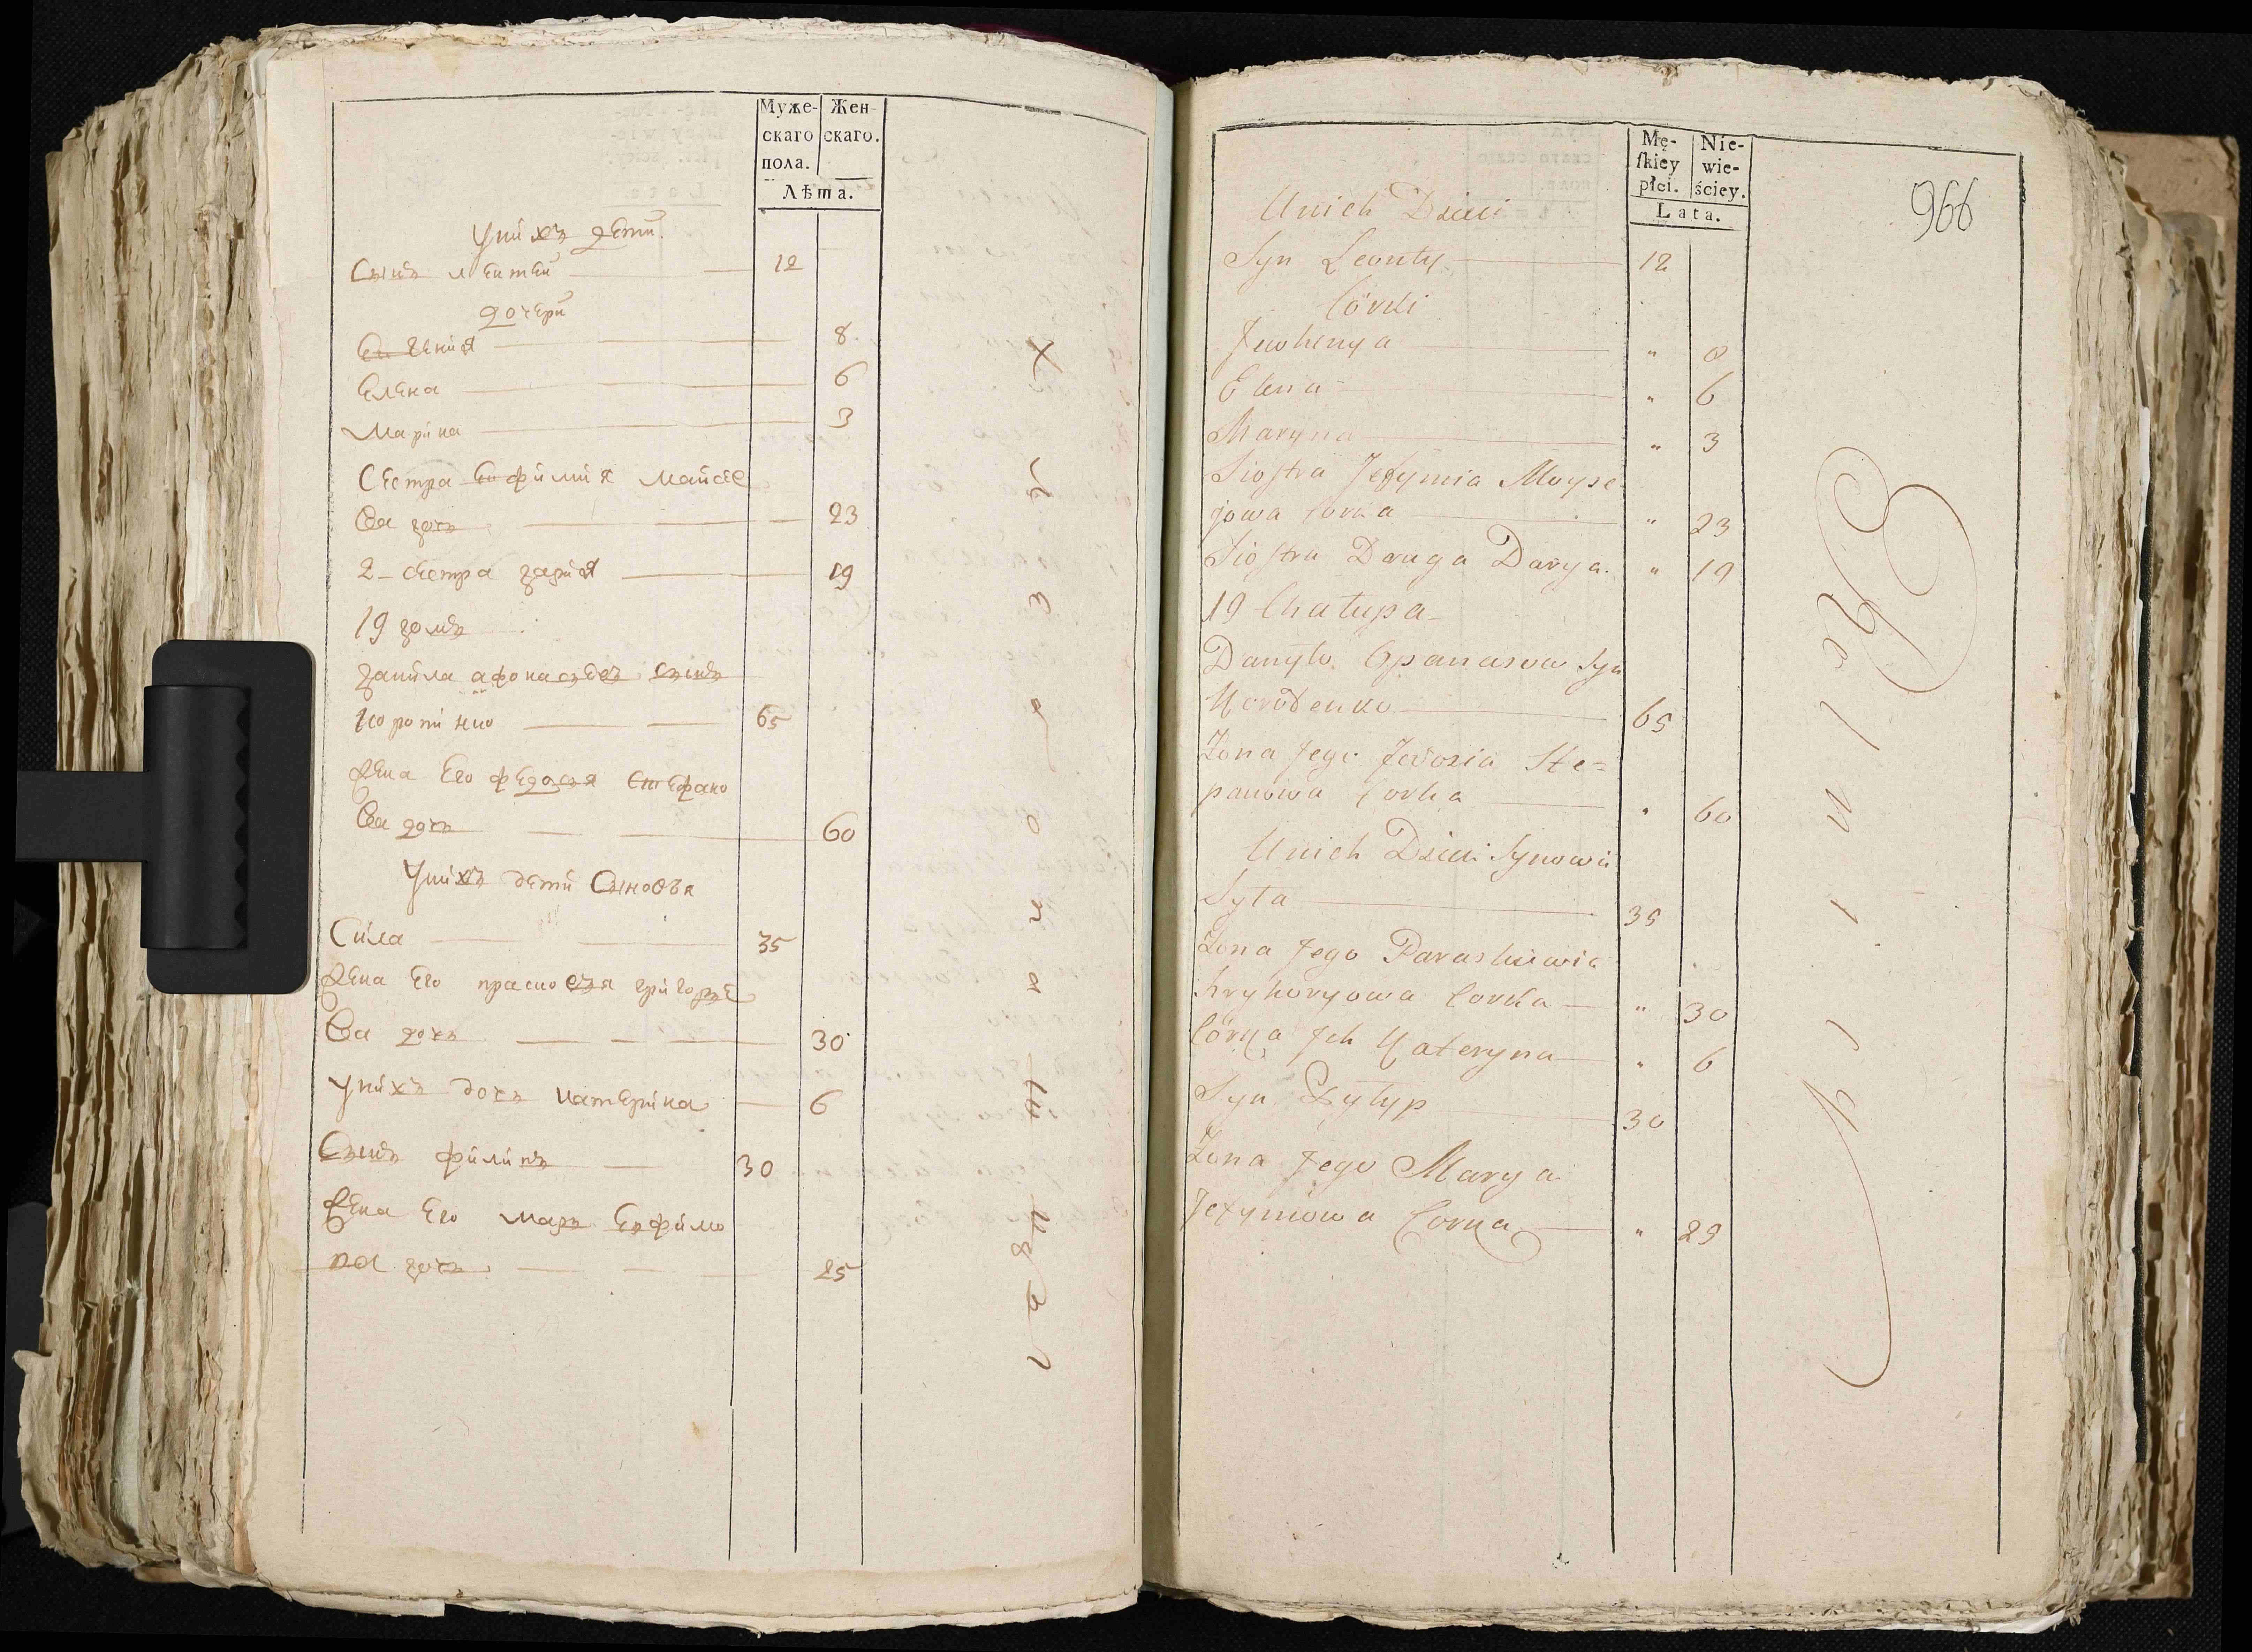 Муже-
скаго
пола.
Жен-
скаго.
Лѣта.
Уних дети
Сынъ 12
дочери
Евгения 8
Елена 6
Марина 3
Сестра Ефимия Майсе
ва дочъ 23
2 - сестра дария 19
19 домъ
данила афонасъевъ сынъ
65
жена Его федосия Стефано
ва дочъ 60
Унихъ дети Сыновъя
Сила 35
жена Его прасковъя григоръе
ва дочъ 30
Унихъ дочъ катерина 6
Сынъ филипъ 30
жена Его маръ Ефимо
ва дочъ 25
Mę-
ſkiey
płci.
Nie-
wie-
ściey.
Lata.
966
Unich Dzieci
Syn Leonty 12
Córki
Jewhenya " 8
Elena " 6
Maryna " 3
Siostra Jefymia Moyse
jowa Corka " 23
Siostra Druga Darya. " 19
19 Chałupa
Danyło Opanasow Syn
65
Żona Jego Fedosia Ste=
panowa Corka " 60
Unich Dzieci Synowie
Syła 35
Żona Jego Paraskiewia
hryhoryowa Corka " 30
Córka Ich Kateryna " 6
Syn 30
Żona Jego Marya
Jefymowa Corka " 29